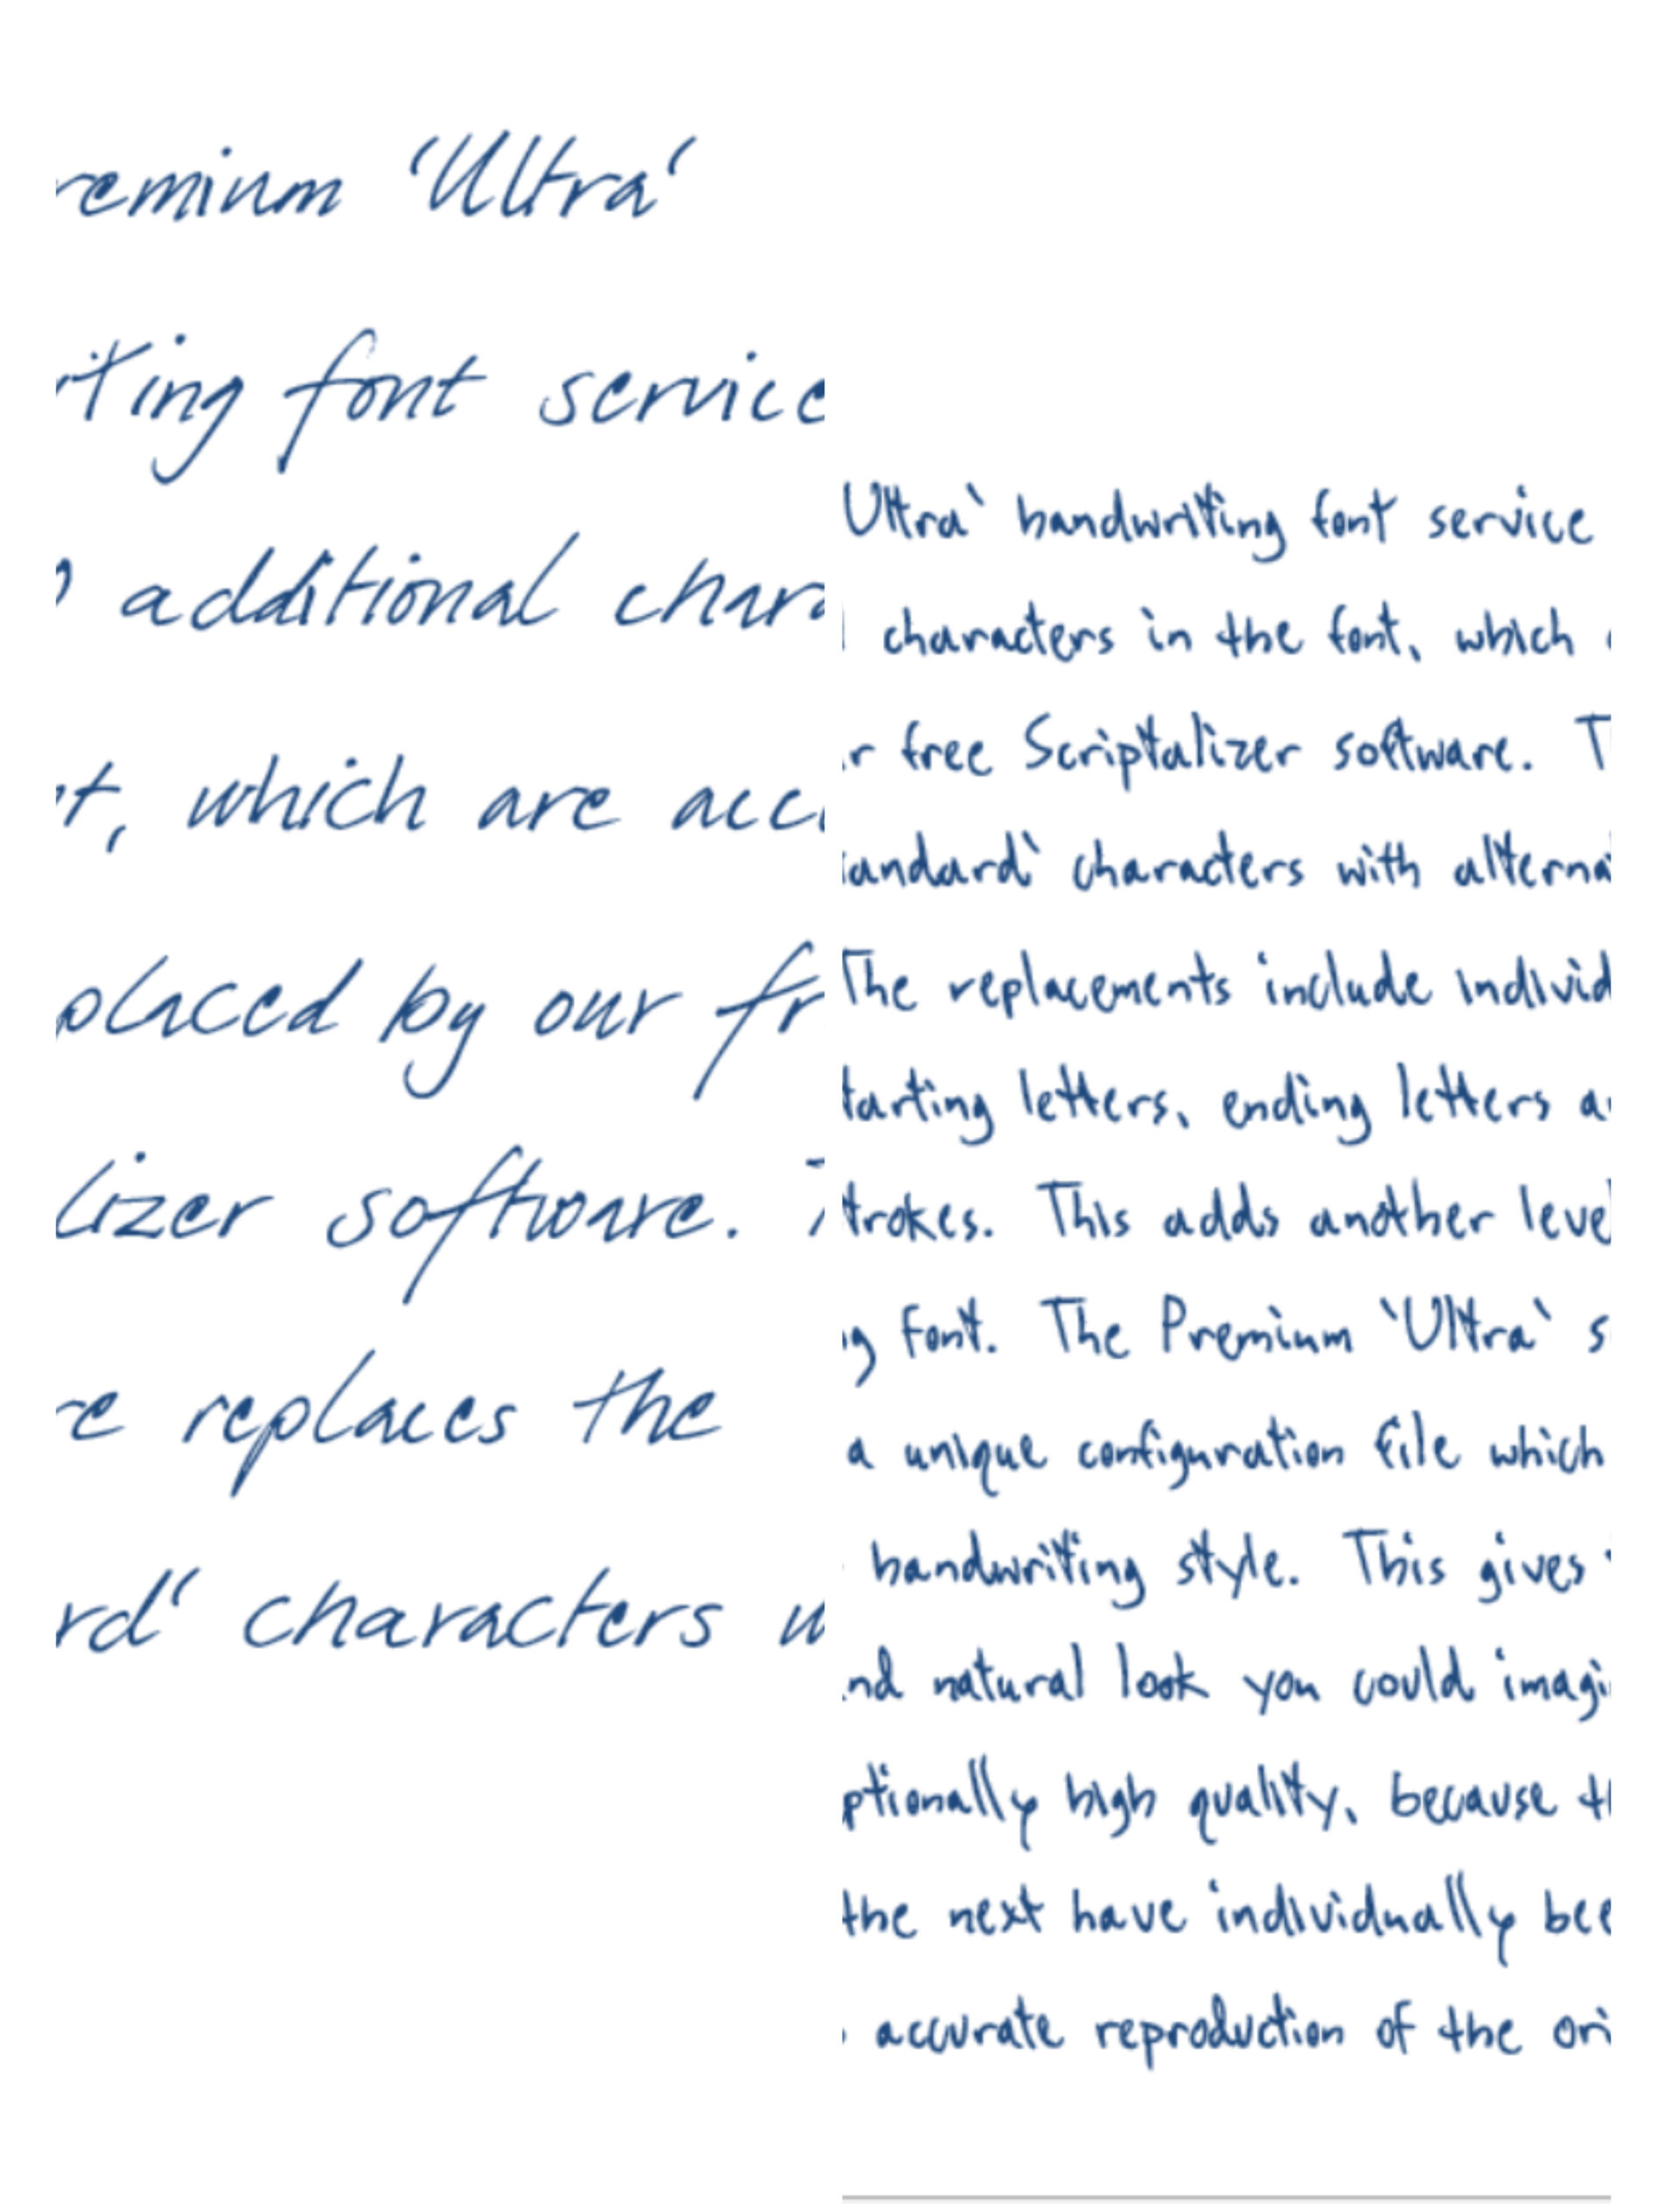 remium 'Ultra'
ting font service
additional chara
t, which are acc
placed by our fr
lizer software. T
re replaces the
rd' characters w
Ultra` handwriting font service
characters in the font, which
r free Scriptalizer software. T
andard` characters with alterna
The replacements include individ
tarting letters, ending letters a
trokes. This adds another level
g font. The Premium `Ultra` s
a unique configuration file which
handwriting style. This gives
nd natural look you could imagi
ptionally high quality, because th
the next have individually bee
accurate reproduction of the ori